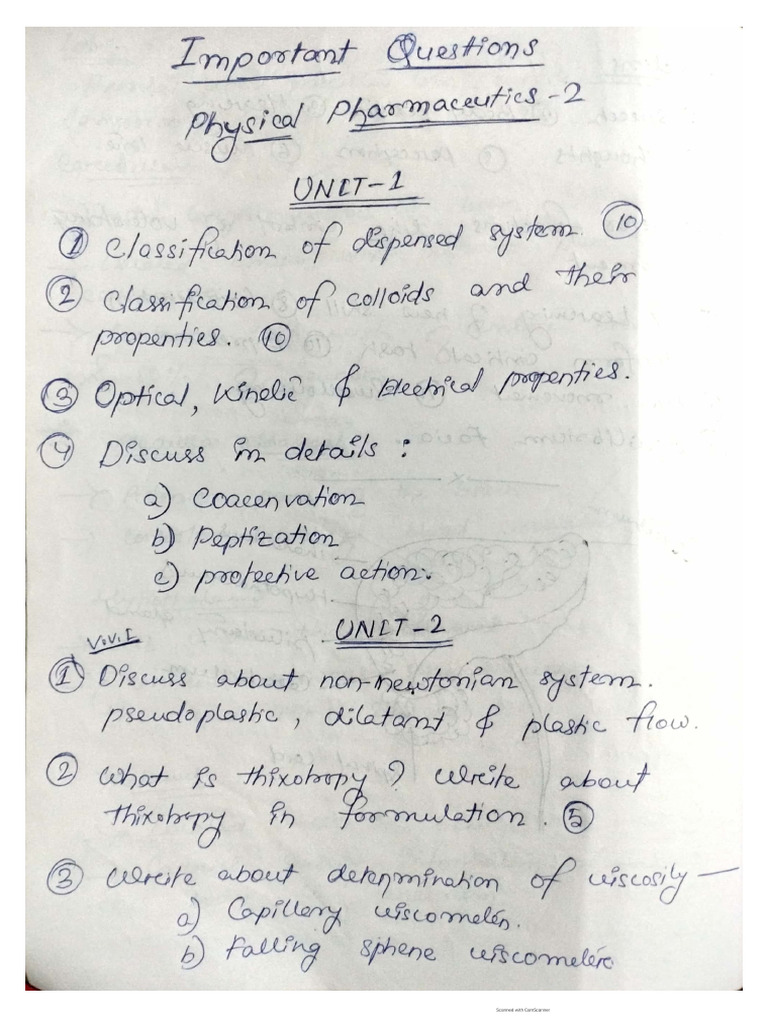 Important Questions
Physical Pharmaceutics-2
UNIT-1
① Classification of dispensed system. ⑩
② Classification of colloids and their
propenties. ⑩
③ Optical, Kinetic & Electrical propenties.
④ Discuss in details :
a) Coacenvation
b) Peptization
c) protective action.
V.V.I
UNIT-2
① Discuss about non-newtonian system.
pseudoplastic, dilatant & plastic flow.
② What is thixotropy? Wreite about
thixotropy in formulation. ⑤
③ Wreite about detenmination of viscosity —
a) Capillery viscometen.
b) Falling sphene viscometere
Scanned with CamScanner